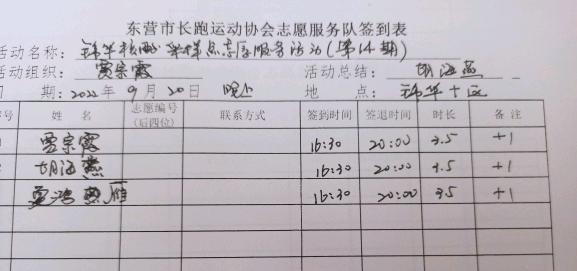 东营市长跑运动协会志愿服务队签到表
活动名称：锦华核酸采样点志愿服务活动(第14期)
活动组织：贾宗霞 活动总结：胡海燕
期：2022年9月20日 晚上 地点：锦华十区
序号 姓名 志愿编号(后四位) 联系方式 签到时间 签退时间 时长 备注
贾宗霞 16:30 20:00 3.5 +1
胡海燕 16:30 20:00 3.5 +1
夏鸿雁 16:30 20:00 3.5 +1